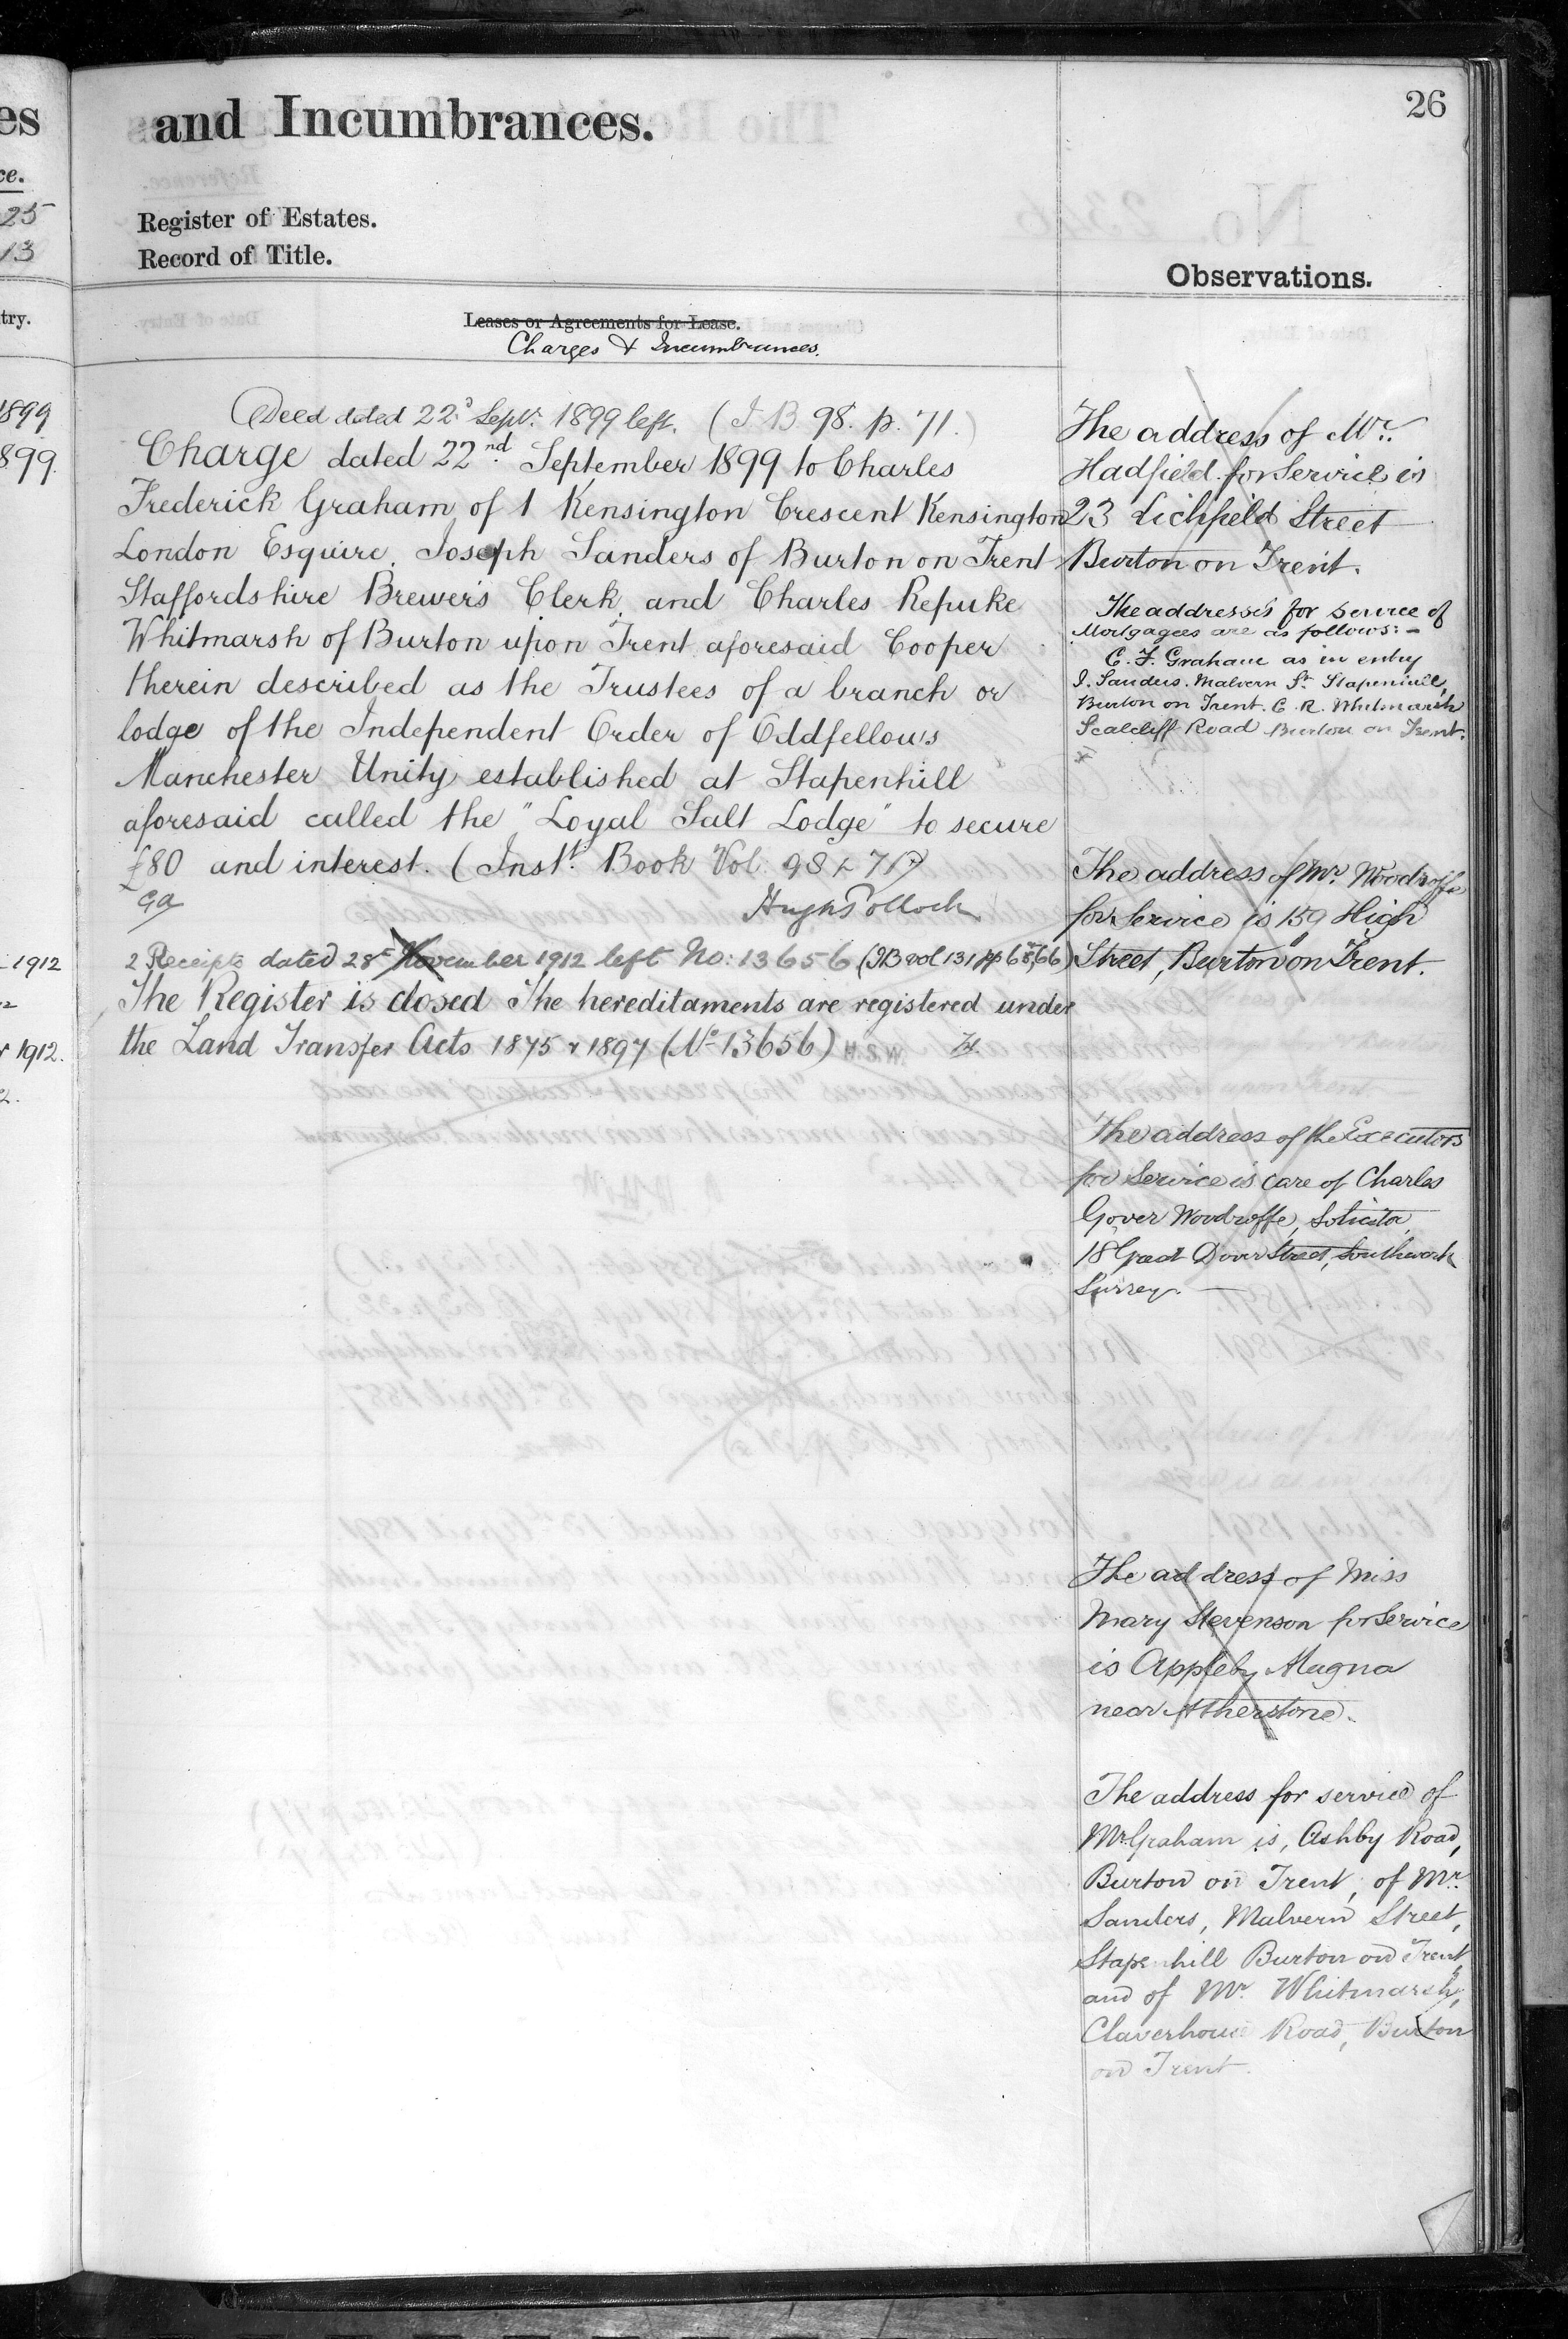 26
and Incumbrances.
Register of Estates.
Record of Title.
Observations.
Leases or Agreements for Lease.
Charges & Incumbrances.
Deed dated 22d Sept. 1899 left. (I B. 98. p. 71.)
Charge dated 22nd September 1899 to Charles
Frederick Graham of 1 Kensington Crescent Kensington
London Esquire. Joseph Sanders of Burton on Trent
Staffordshire Brewers Clerk and Charles Repuke
Whitmarsh of Burton upon Trent aforesaid Cooper
therein described as the Trustees of a branch or
lodge of the Independent Order of Oddfellows
Manchester Unity established at Stapenhill
aforesaid called the "Loyal Salt Lodge" to secure
£80 and interest. (Inst. Book Vol. 98 p 71)
Hugh Pollock
2 Receipts dated 28th November 1912 left No: 13656 (IB vol 131 pp 65, 66)
The Register is closed The hereditaments are registered under
the Land Transfer Acts 1875 & 1897 (No 13656) H.S.W.
The address of Mr.
Hadfield for Service is
23 Lichfield Street
Burton on Trent.
The addresses for service of
Mortgagees are as follows: -
C. F. Graham as in entry
J. Sanders. Malvern St. Stapenhill,
Burton on Trent. C. R. Whitmarsh
Scalcliff Road Burton on Trent.
The address of Mr. Woodroffe
for Service is 159 High
Street, Burton on Trent.
The address of the Executors
for Service is care of Charles
Gover Woodroffe, Solicitor,
18 Great Dover Street, Southwark
Surrey.
The address of Miss
Mary Stevenson for Service
is Appleby Magna
near Atherstone.
The address for service of
Mr. Graham is, Ashby Road,
Burton on Trent, of Mr.
Sanders, Malvern Street,
Stapenhill Burton on Trent
and of Mr. Whitmarsh,
Claverhouse Road, Burton
on Trent.
es
ce.
25
13
try.
1899
899.
1912
r 1912.